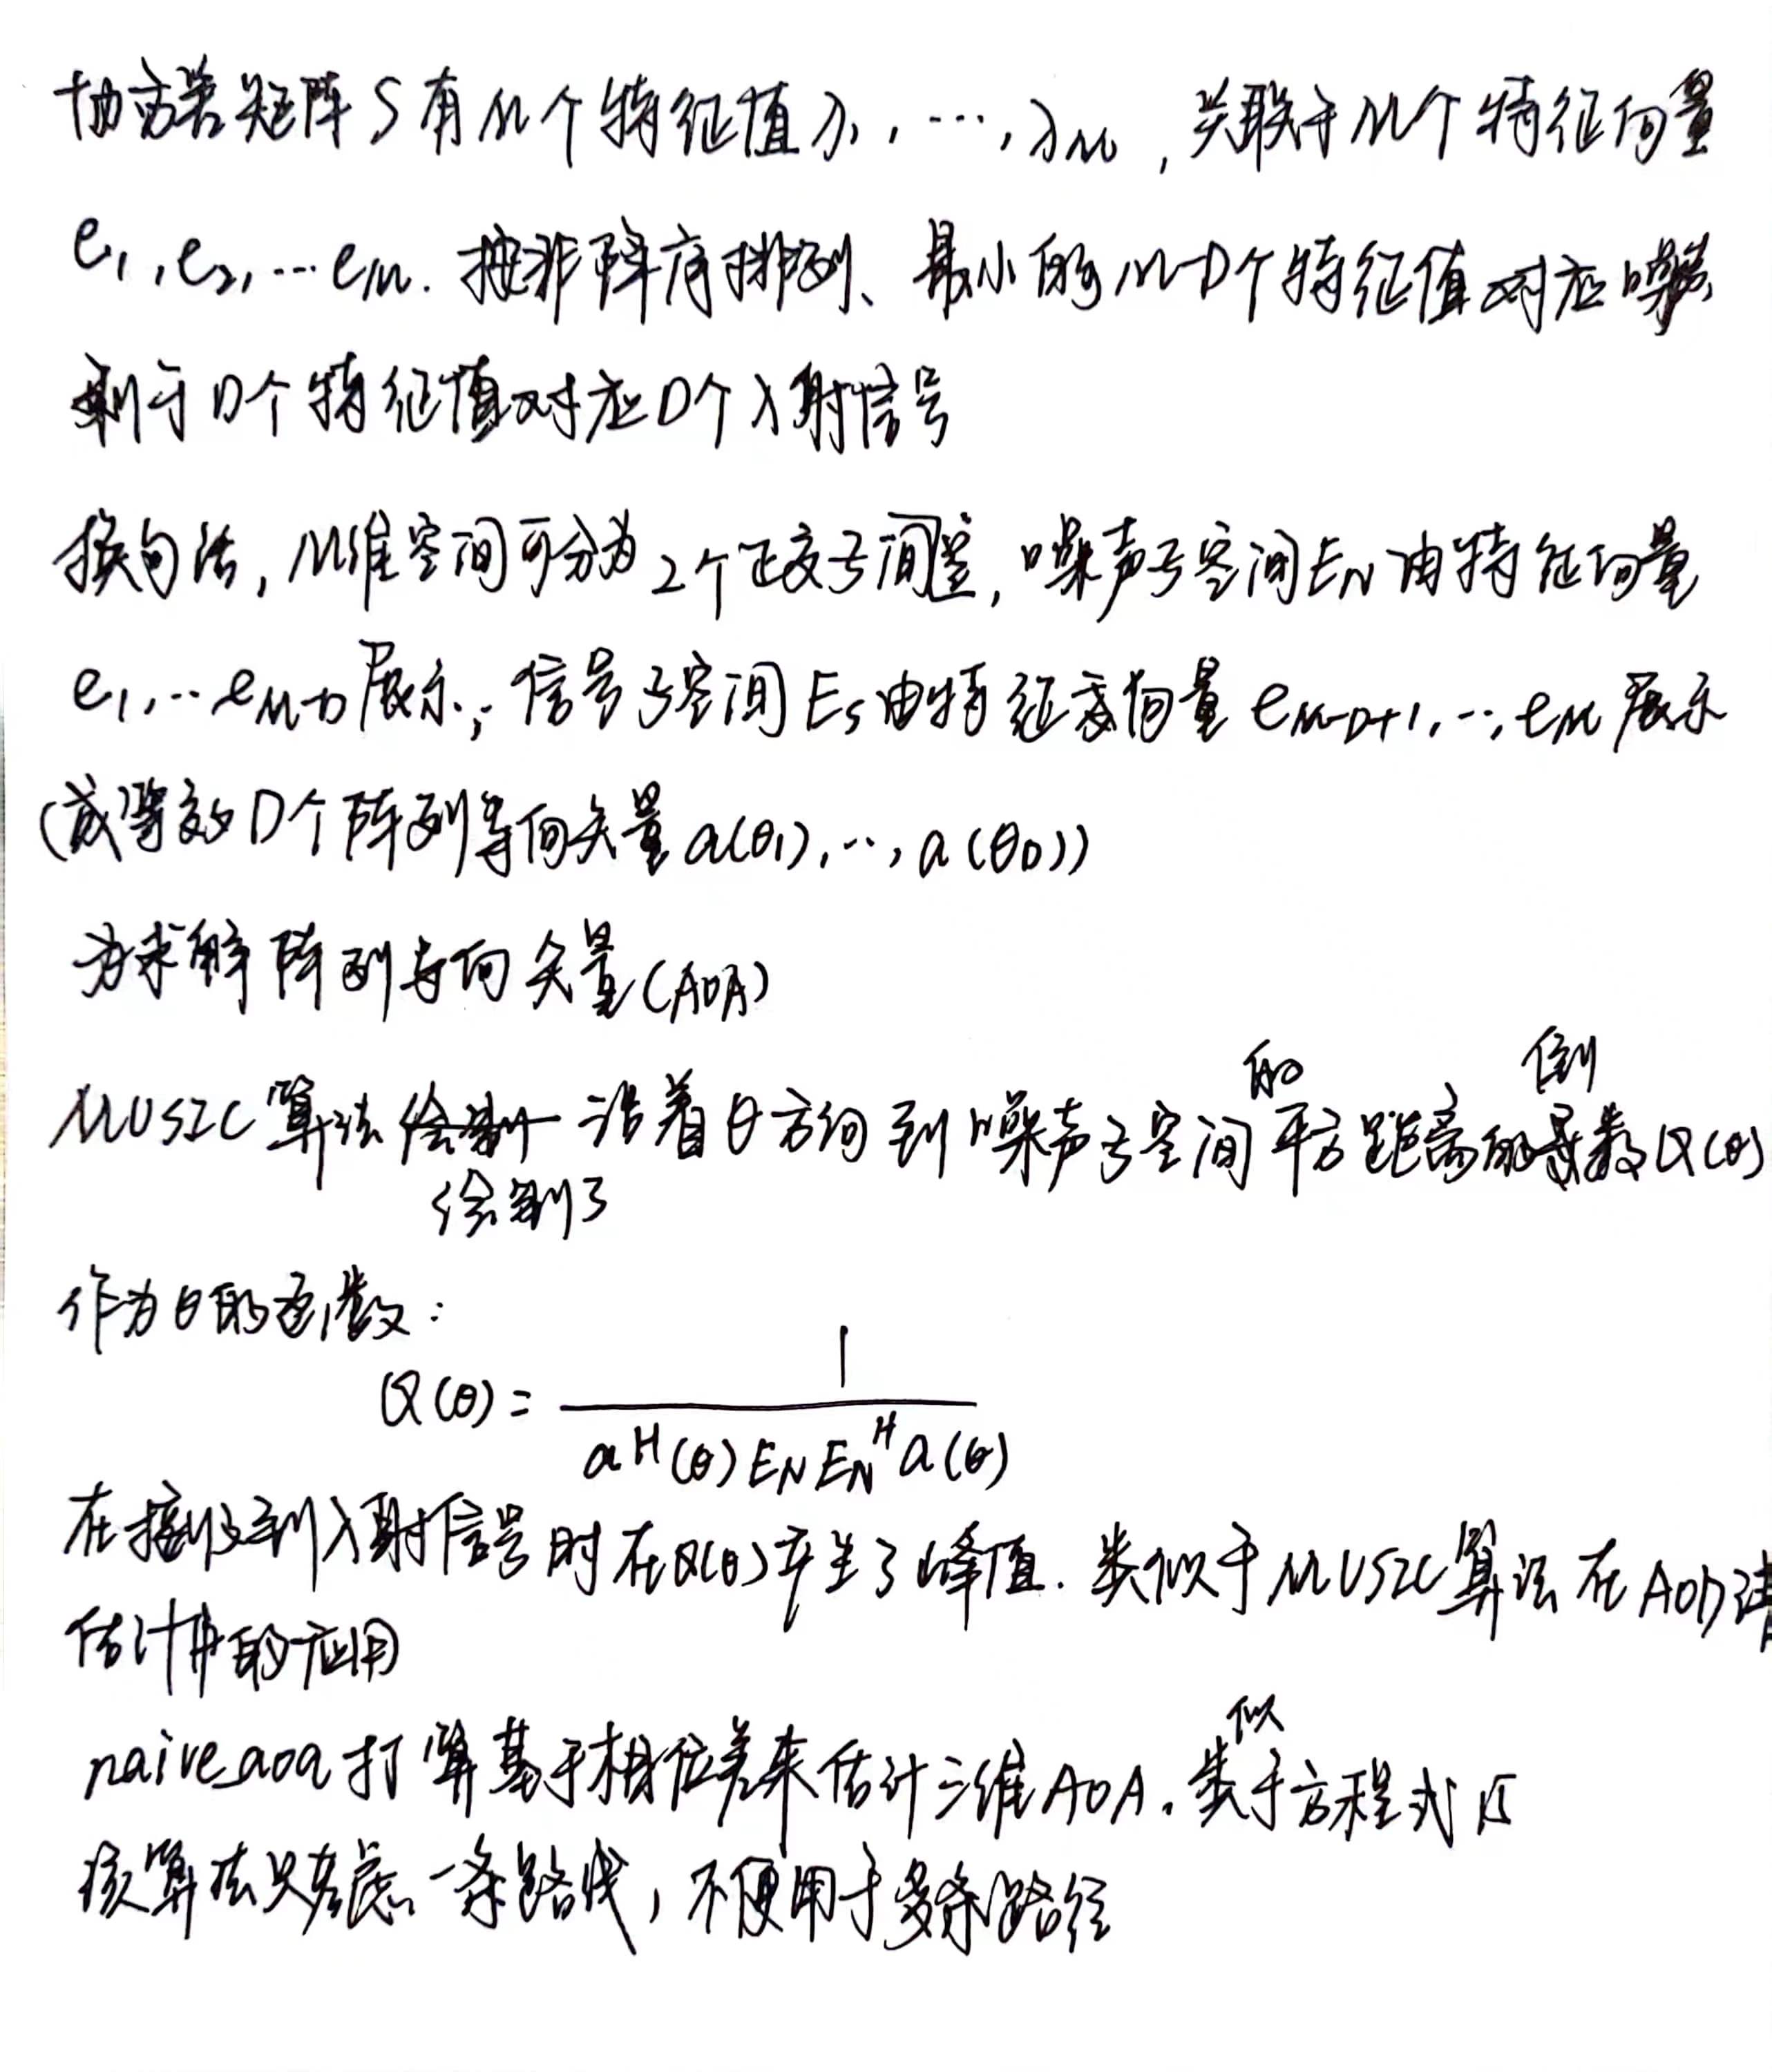 协方差矩阵S有M个特征值λ₁,…,λM,关联于M个特征向量
e₁,e₂,…eM. 按非降序排列、最小的M-D个特征值对应噪声
剩于D个特征值对应D个入射信号
换句话,M维空间可分为2个正交子间空,噪声子空间EN由特征向量
e₁,…eM-D展示;信号子空间Es由特征向量eM-D+1,…,eM展示
(或等效D个阵列导向矢量a(θ₁),…,a(θD))
为求解阵列导向矢量(AOA)
MUSIC算法绘制了沿着θ方向到噪声子空间的平方距离的倒数Q(θ)
作为θ的函数:
Q(θ)= 1 / aᴴ(θ)EN ENᴴ a(θ)
在接收到入射信号时在Q(θ)产生了峰值.类似于MUSIC算法在AOD谱
估计中的应用
naive_aoa打算基于相位差来估计三维AOA。类似于方程式15
该算法只考虑一条路线,不便用于多条路径